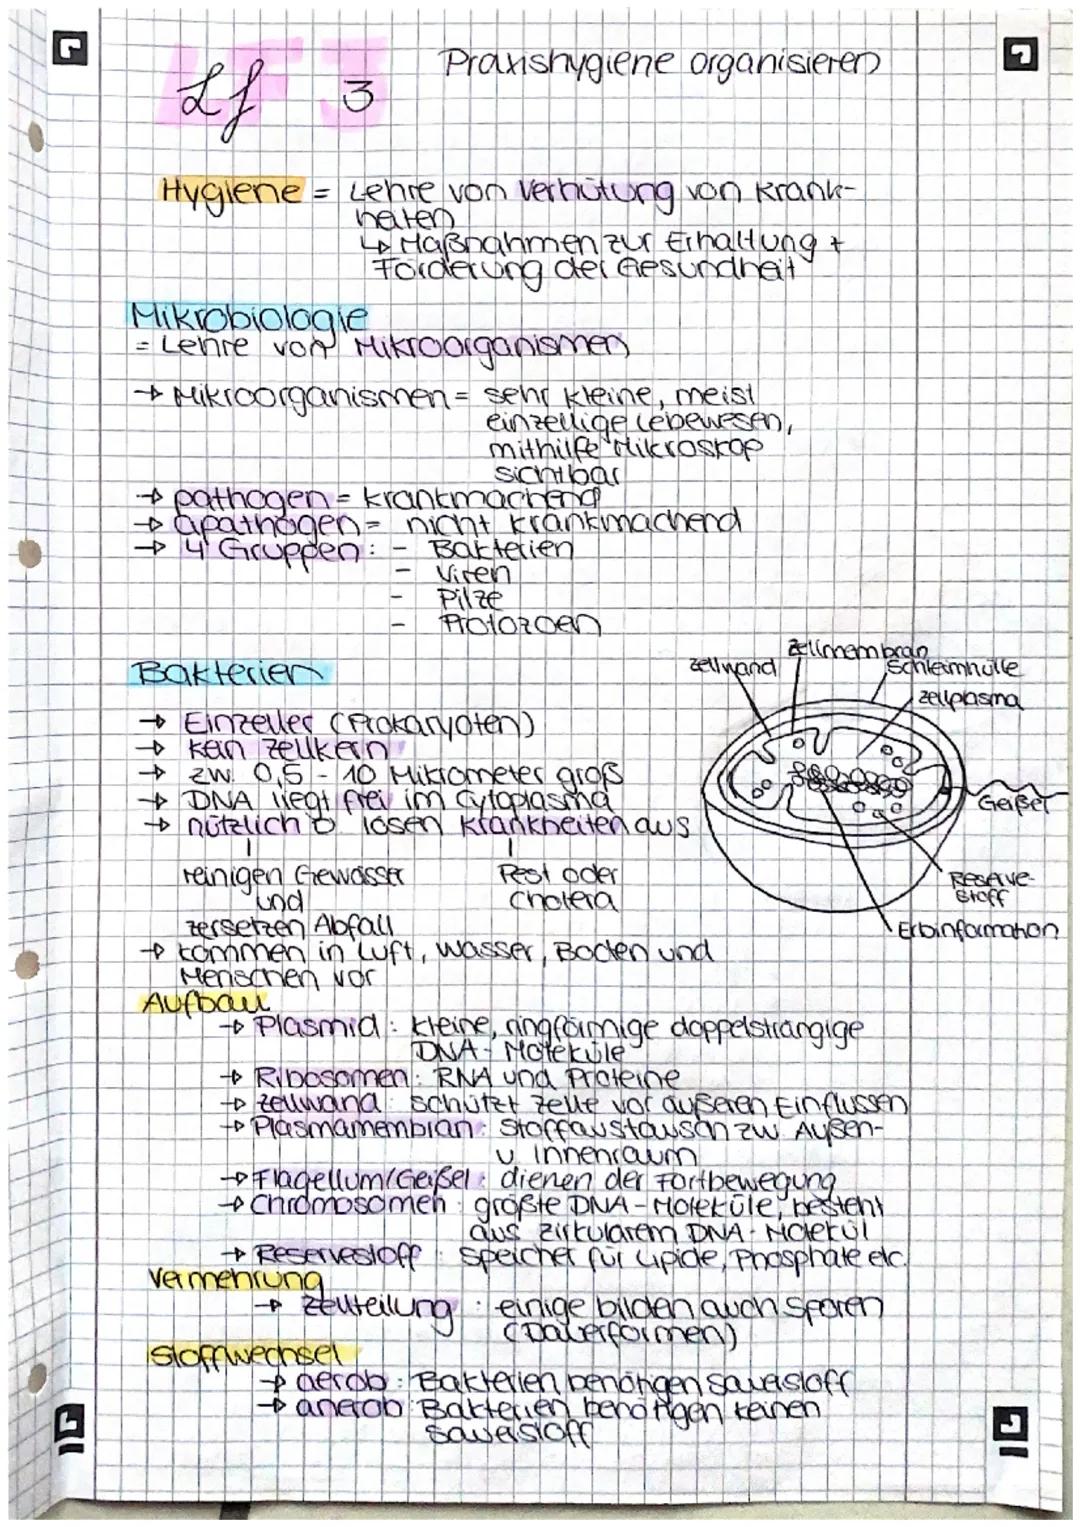 Lf 3
Praxishygiene organisieren
Hygiene = Lehre von Verhütung von Krank-
heiten
↳ Maßnahmen zur Erhaltung +
Förderung der Gesundheit
Mikrobiologie
= Lehre von Mikroorganismen
→ Mikroorganismen = sehr kleine, meist
einzellige Lebewesen,
mithilfe Mikroskop
sichtbar
→ pathogen = krankmachend
→ apathogen = nicht krankmachend
→ 4 Gruppen: - Bakterien
- Viren
- Pilze
- Protozoen
Bakterien
→ Einzeller (Prokaryoten)
→ kein Zellkern
→ zw. 0,5 - 10 Mikrometer groß
→ DNA liegt frei im Cytoplasma
→ nützlich o. lösen Krankheiten aus
reinigen Gewässer
und
zersetzen Abfall
Pest oder
Cholera
→ kommen in Luft, Wasser, Boden und
Menschen vor
Zellwand
Zellmembran
Schleimhülle
Zellplasma
Geißel
Reserve-
stoff
Erbinformation
Aufbau
→ Plasmid: kleine, ringförmige doppelsträngige
DNA-Moleküle
→ Ribosomen: RNA und Proteine
→ Zellwand: schützt Zelle vor äußeren Einflüssen
→ Plasmamembran: Stoffaustausch zw. Außen-
u. Innenraum
→ Flagellum/Geißel: dienen der Fortbewegung
→ Chromosomen: größte DNA-Moleküle, besteht
aus zirkularem DNA-Molekül
→ Reservestoff: Speicher für Lipide, Phosphate etc.
Vermehrung
→ Zellteilung: einige bilden auch Sporen
(Dauerformen)
Stoffwechsel
→ aerob: Bakterien benötigen Sauerstoff
→ anerob: Bakterien benötigen keinen
Sauerstoff